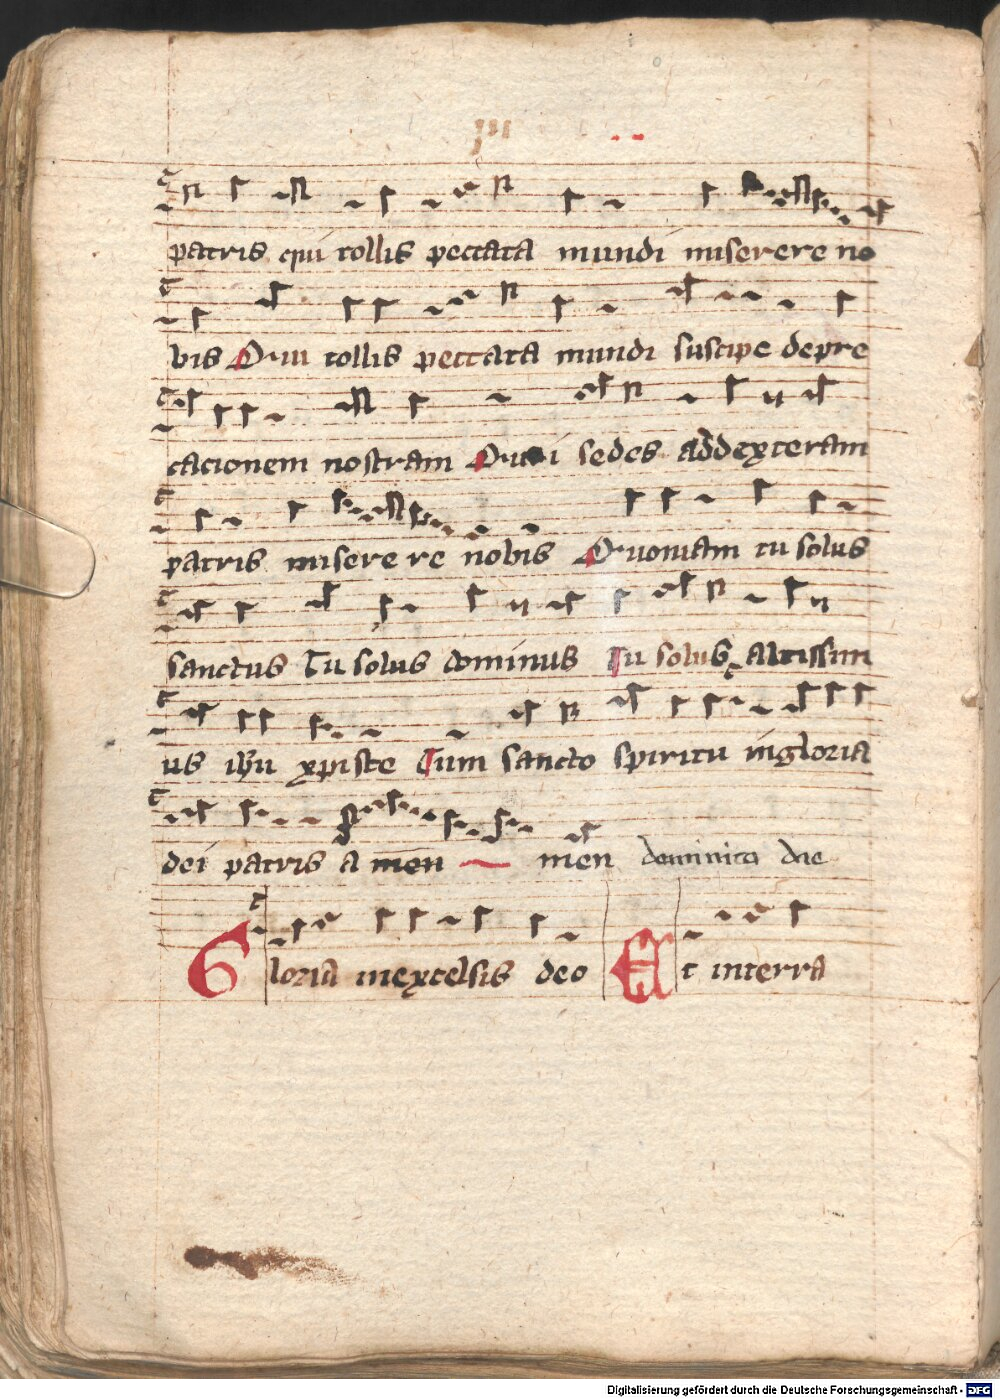 patris qui tollis peccata mundi miserere no
bis Qui tollis peccata mundi suscipe depre
cacionem nostram Qui sedes ad dexteram
patris miserere nobis Quoniam tu solus
sanctus Tu solus dominus Tu solus altissim
us ihu xpiste Cum sancto spiritu in gloria
dei patris a men men dominica die
Gloria in excelsis deo Et in terra
Digitalisierung gefördert durch die Deutsche Forschungsgemeinschaft - DFG